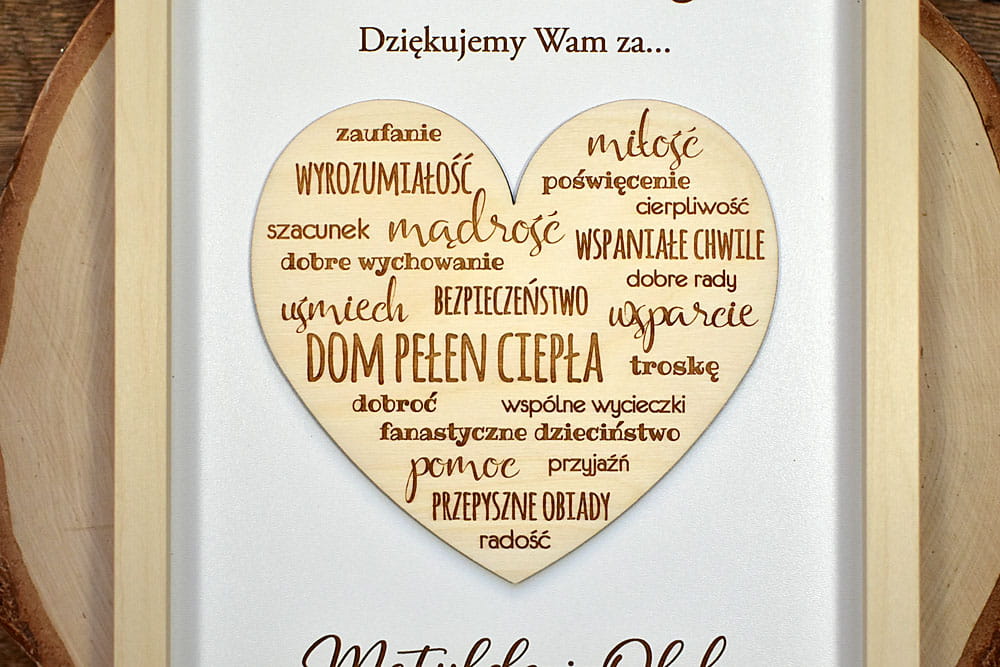 Dziękujemy Wam za...
zaufanie
miłość
WYROZUMIAŁOŚĆ
poświęcenie
cierpliwość
szacunek mądrość
WSPANIAŁE CHWILE
dobre wychowanie
dobre rady
uśmiech BEZPIECZEŃSTWO
wsparcie
DOM PEŁEN CIEPŁA
troskę
dobroć wspólne wycieczki
fanastyczne dzieciństwo
pomoc przyjaźń
PRZEPYSZNE OBIADY
radość